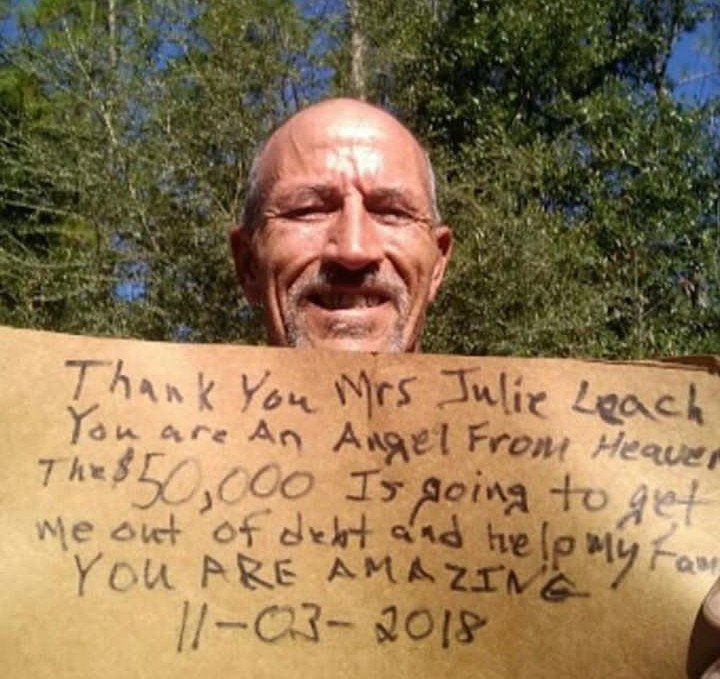 Thank You Mrs Julie Leach
You are An Angel From Heaven
The $50,000 Is going to get
me out of debt and help My Fam
YOU ARE AMAZING
11-03-2018